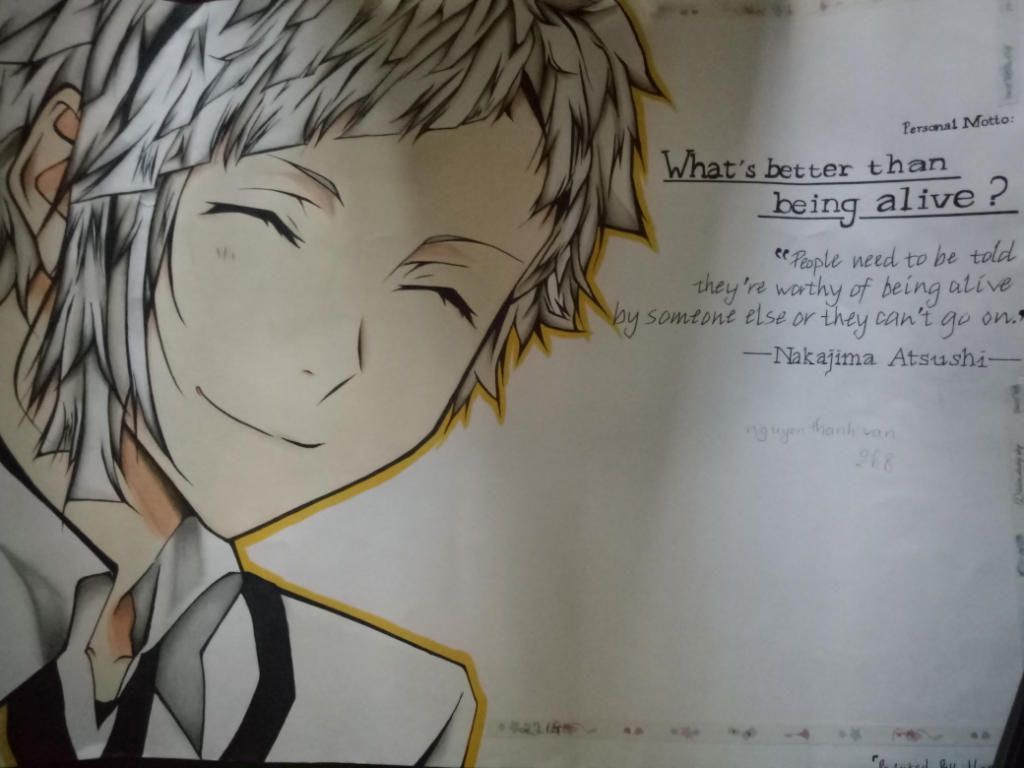 Personal Motto:
What's better than
being alive?
"People need to be told
they're worthy of being alive
by someone else or they can't go on."
—Nakajima Atsushi—
nguyen thanh van
2k8